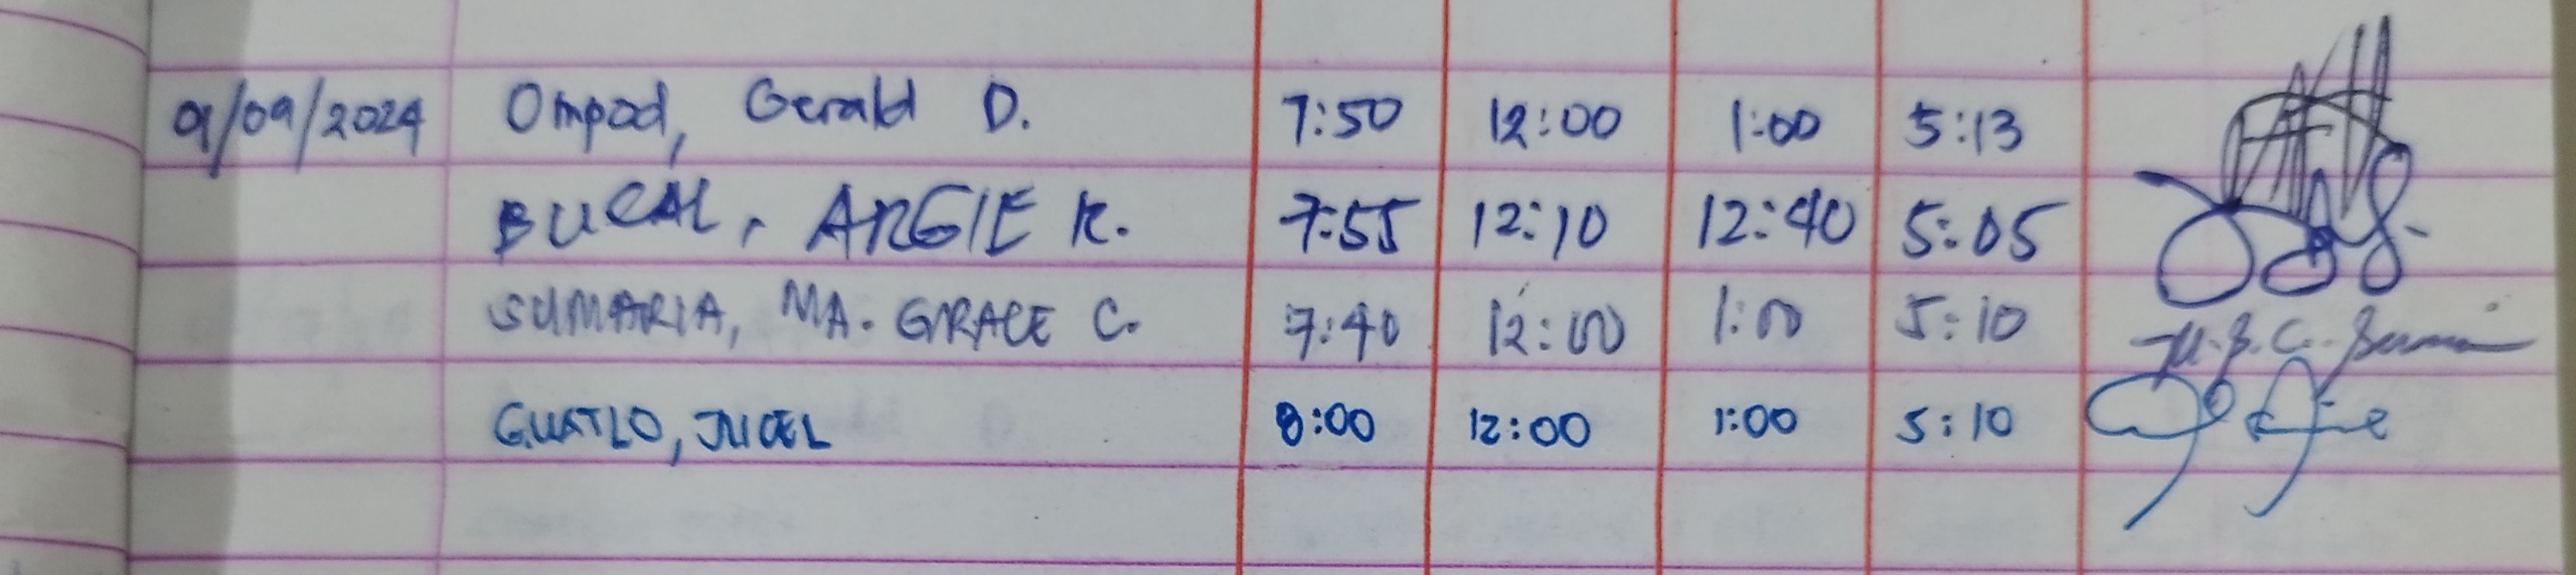 09/09/2024 Ompad, Gerald D. 7:50 12:00 1:00 5:13
BUCAL, ARGIE R. 7:55 12:10 12:40 5:05
SUMARIA, MA. GRACE C. 7:40 12:00 1:00 5:10
GUATLO, JUCEL 8:00 12:00 1:00 5:10